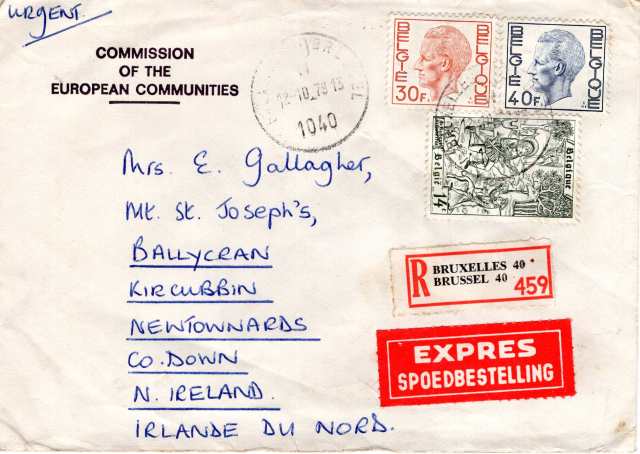 URGENT.
COMMISSION
OF THE
EUROPEAN COMMUNITIES
12-10_78 13
1040
BELGIE BELGIQUE
30F
BELGIE BELGIQUE
40F
België / Belgique
14F
Mrs. E. Gallagher,
Mt. St. Joseph's,
BALLYCRAN
KIRCUBBIN
NEWTOWNARDS
CO. DOWN
N. IRELAND.
IRLANDE DU NORD.
R BRUXELLES 40 *
BRUSSEL 40 459
EXPRES
SPOEDBESTELLING